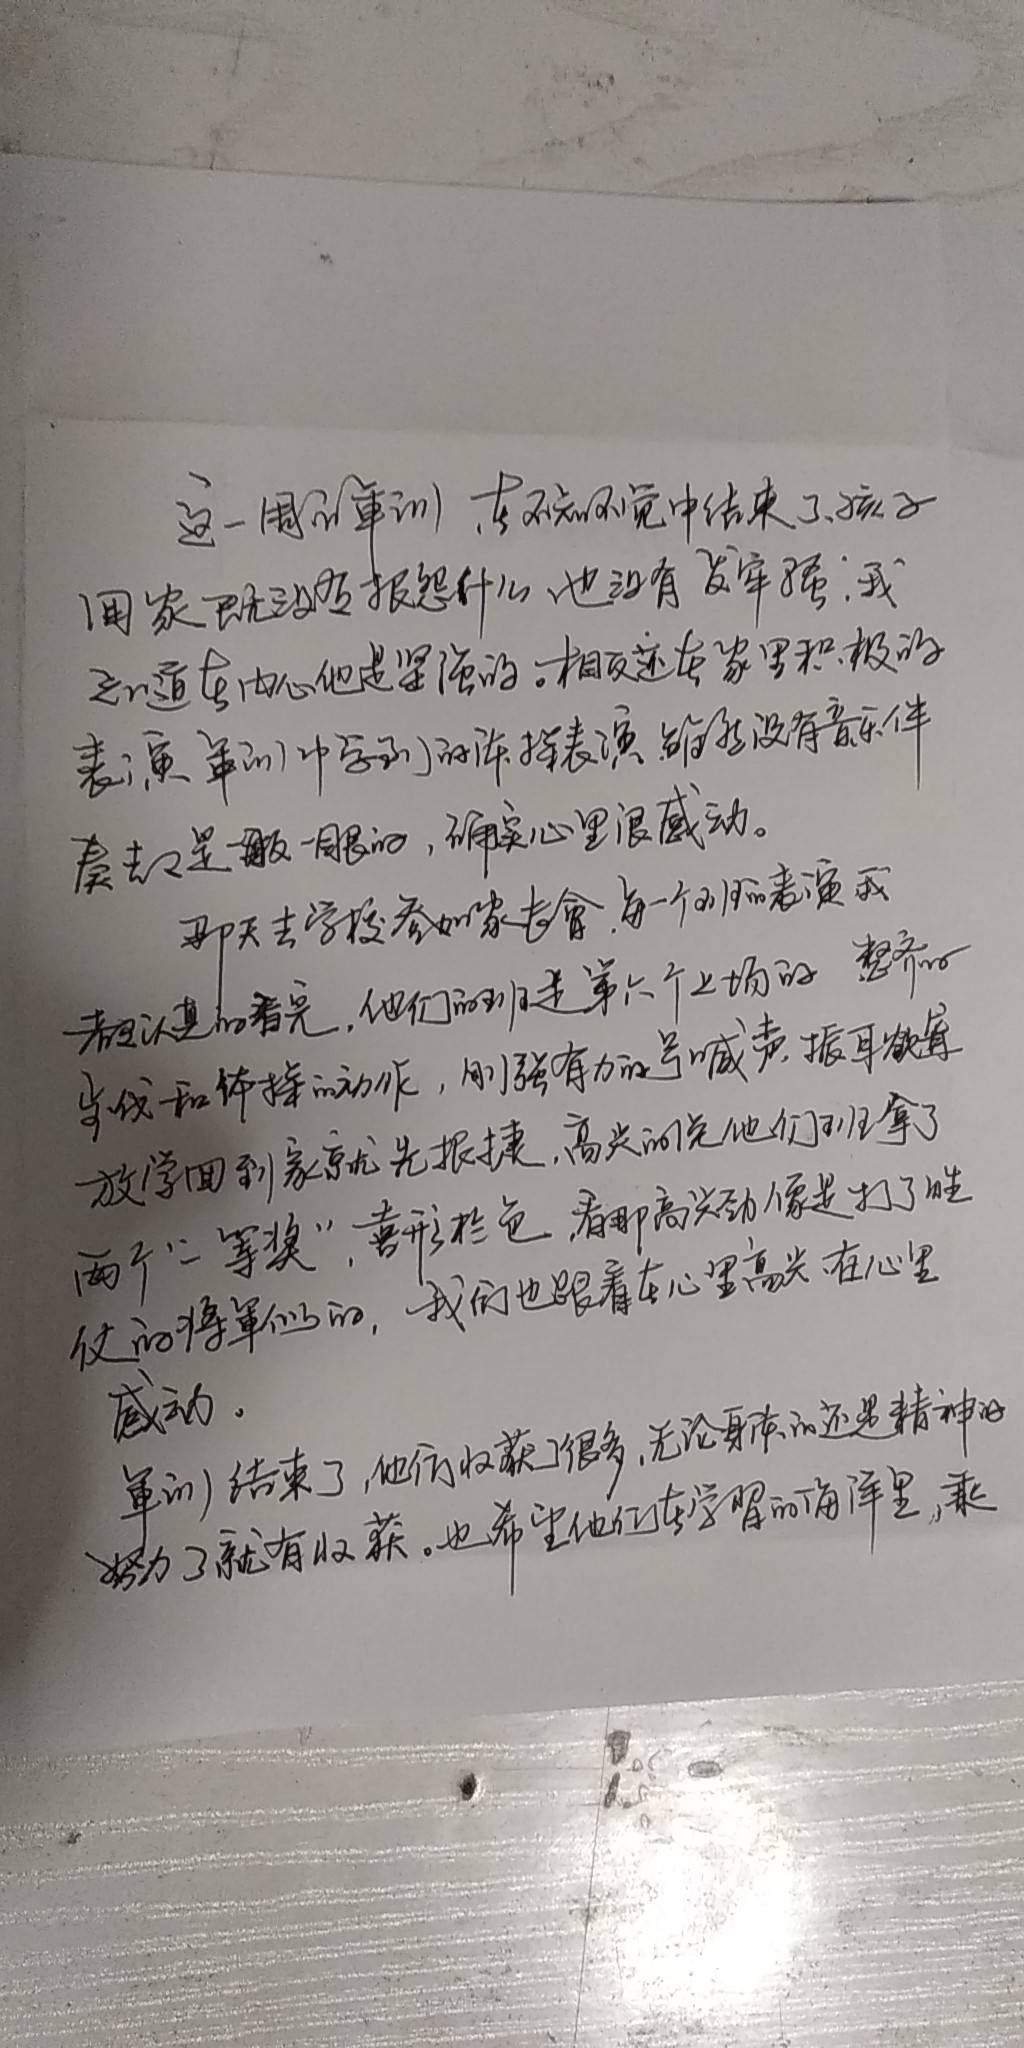 这一周的军训,在不知不觉中结束了、孩子
回家既没有报怨什么、也没有发牢骚;我
知道在内心他是坚强的。相反还在家里积极的
表演军训中学到的体操表演虽然没有音乐伴
奏却是一板一眼的,确实心里很感动。
那天去学校参加家长會,每一个班的表演我
都认真的看完,他们的班是第六个上场的 整齐的
步伐和体操的动作,刚强有力的号喊声振耳欲聋
放学回到家就先报捷,高兴的说他们班拿了
两个“二等奖”,喜形於色,看那高兴劲像是打了胜
仗的将軍似的,我们也跟着在心里高兴在心里
感动。
軍训结束了,他们收获了很多,无论身体的还是精神的
努力了就有收获。也希望他们在学習的海洋里,乘